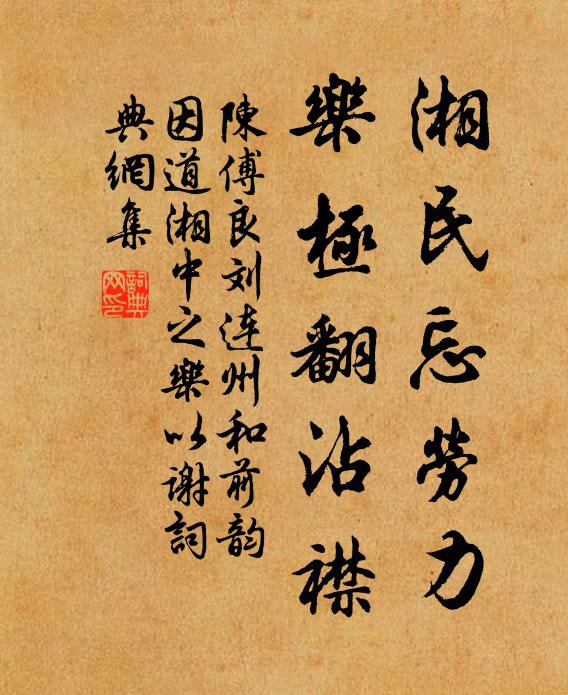 湘民忘勞力
樂極翻沾襟
陳傅良刘连州和前韵
因道湘中之樂以谢詞
典網集
詞典網印